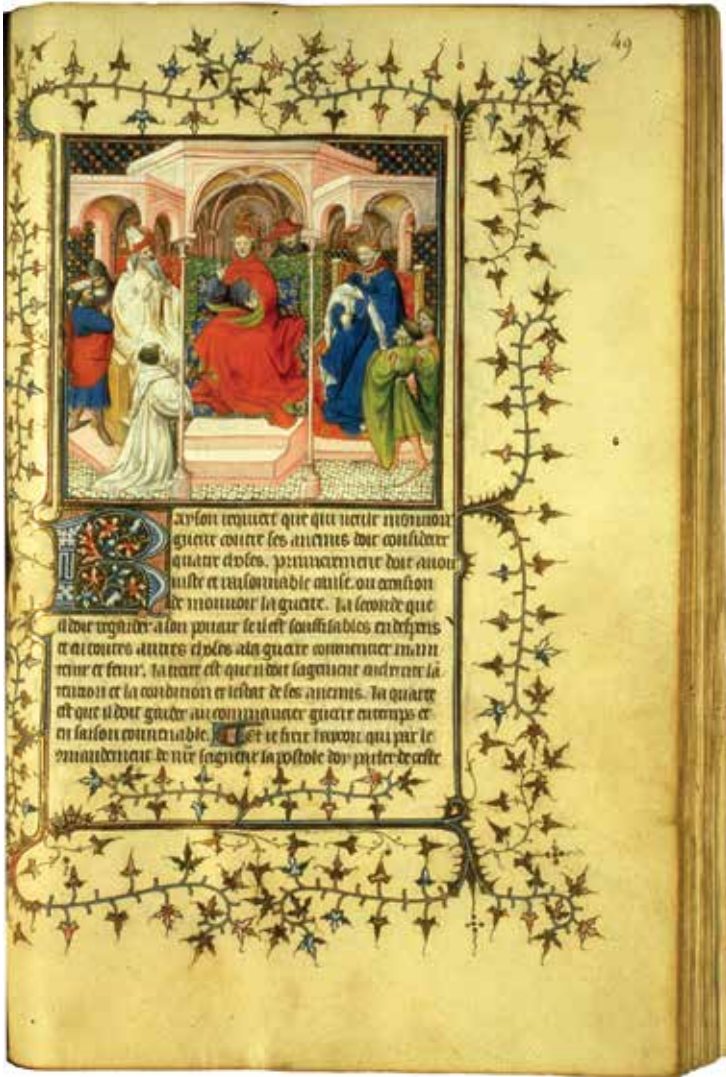 49
Rayson requiert que qui veult mouvoir
guerre contre ses anemis doit considerer
quatre choses. premierement doit avoir
juste et raisonnable cause. ou occasion
de mouvoir la guerre. la seconde que
il doit regarder a son pouair se il est souffisables en despens
et en toutes autres choses a la guerre commencier main
tenir et fenir. la tierce est que il doit sagement enchercier la
tencion et la condition et lestat de ses anemis. la quarte
est que il doit guider au commancier guerre en temps et
en saison convenable. Et ie frere haycon qui par le
mandement de nre seigneur lapostole doy parler de ceste